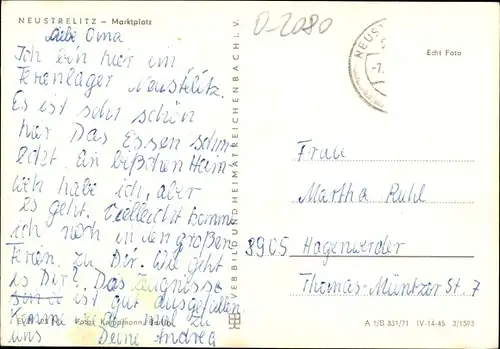 NEUSTRELITZ – Marktplatz
Liebe Oma
Ich bin hier im
Ferienlager Neustrelitz.
Es ist sehr schön
hier Das Essen schm
eckt. Ein bißchen Heim
weh habe ich, aber
es geht. Vielleicht komme
ich noch in den großen
Ferien zu Dir. Wie geht
es Dir? Das Zeugnisse
ist gut ausgefallen
Komme zu mal zu
uns Deine Andrea
Foto: Kampmann, Berlin
VEB BILD UND HEIMAT REICHENBACH i. V.
O-2080
NEUST
-7.
Echt Foto
Frau
Martha Ruhl
8905 Hagenwerder
Thomas-Müntzer St. 7
A 1/B 831/71 IV-14-45 3/1593